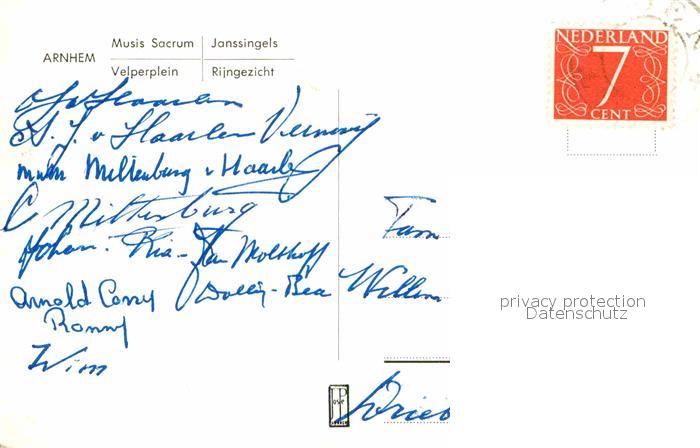 ARNHEM
Musis Sacrum Janssingels
Velperplein Rijngezicht
NEDERLAND
7
CENT
v Haarlem
A. J. v Haarlem
Miltenburg v Haarlem
C Miltenburg
Johan - Ria - Jan Molthoff
Arnold Corry Dolly - Bea
Ronny
Wim
Fam
Willem
Drie
privacy protection
Datenschutz